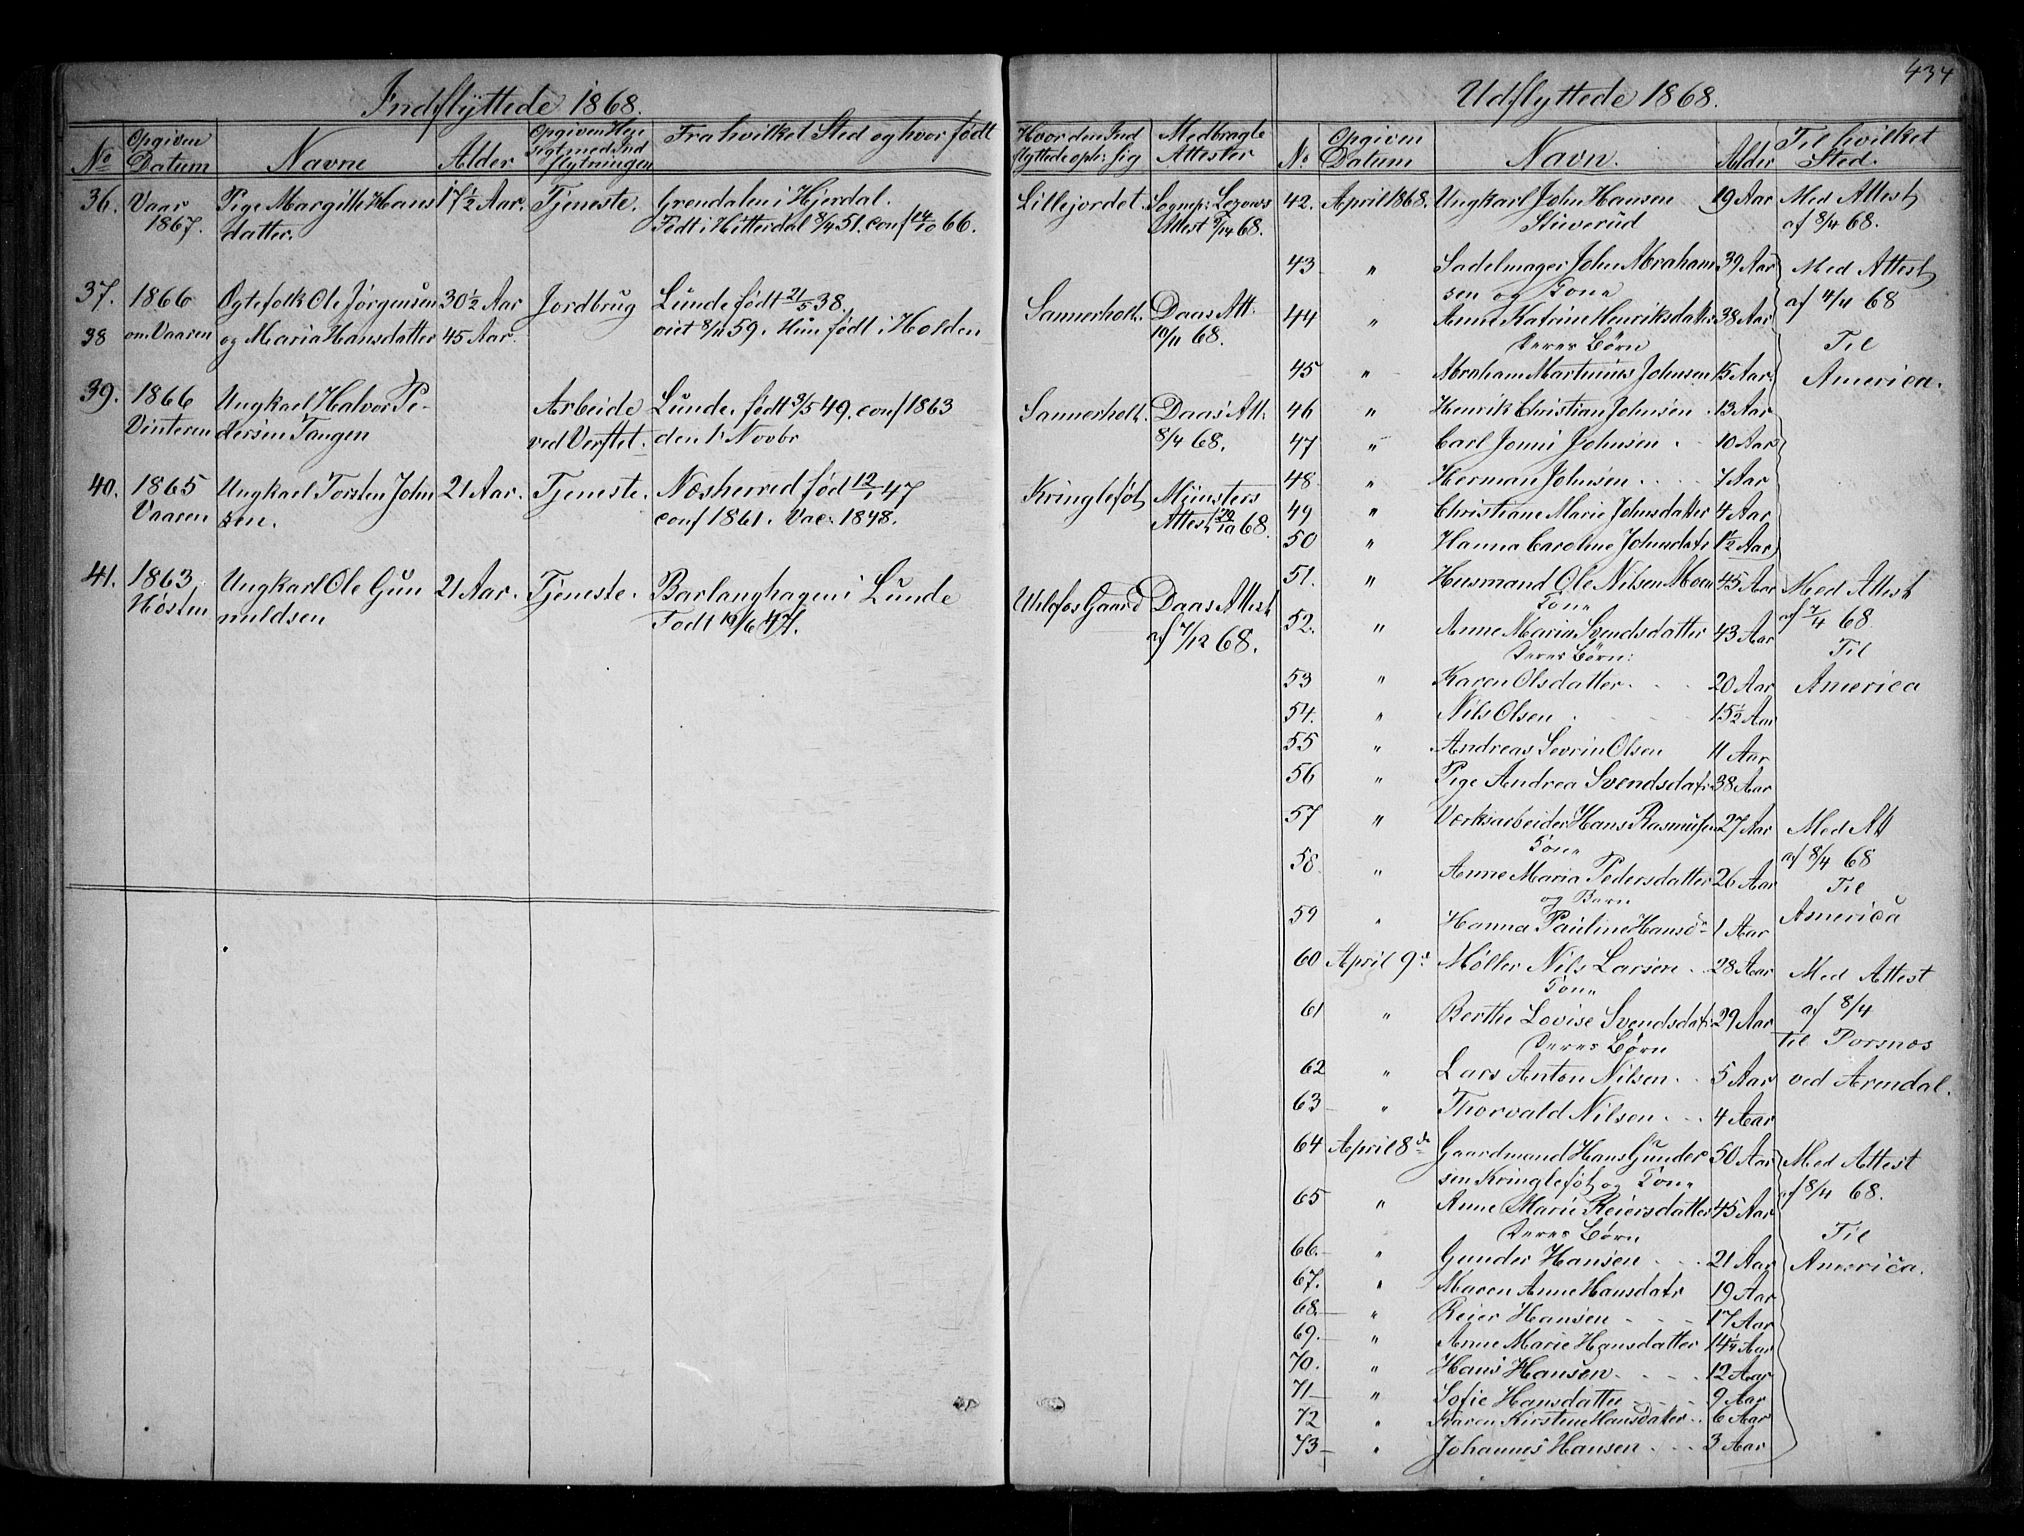 434
Indflÿttede 1868.
No Opgiven Datum Navne Alder Opgiven Hensigt med Indflytningen Fra hvilket Sted og hvor født Hvor den Indflyttede opholder sig Medbragte Attester
36. Vaar 1867. Pige Margitte Hansdatter. 17½ Aar. Tjeneste. Grondalen i Hjerdal. Lillejordet. Sognep: Lozows
Født i Hitterdal 8/4 51. conf 14/10 66. Attest 9/14 68.
37. 1866 Ægtefolk Ole Jørgensen 30½ Aar Jordbrug Lunde født 21/5 38, Sannerholt. Daas Att.
38 om Vaaren og Maria Hansdatter 45 Aar. viet 8/11 59. Hun født i Holden 10/11 68.
39. 1866 Ungkarl Halvor Pe- Arbeide Lunde. født 3/5 49. conf 1863 Sannerholt. Daas Att:
Vinteren dersen Tangen ved Verftet. den 1. Novbr 8/4 68.
40. 1865 Ungkarl Torsten John 21 Aar. Tjeneste. Næsherred fød 12/1 47 Kringleføt Münsters
Vaaren sen. conf 1861. Vac. 1848. Attest 29/10 68.
41. 1863, Ungkarl Ole Gun 21 Aar. Tjeneste. Barlanghagen i Lunde Ulefos Gaard Daas Attest
Høsten nuldsen Født 19/6 47. af 7/12 68.
Udflyttede 1868.
No Opgiven Datum Navn. Alder Til hvilket Sted.
42. April 1868. Ungkarl John Hansen 19 Aar Med Attest
Stuverud af 8/4 68.
43 " Sadelmager John Abraham 39 Aar Med Attest
sen og Kone af 4/4 68
44 " Anne Katrine Henriksdatter 38 Aar
Deres Børn Til
45 " Abraham Martinius Johnsen 15 Aar America.
46 " Henrik Christian Johnsen. 13 Aar
47 " Carl Jonni Johnsen. 10 Aar
48 " Herman Johnsen.... 7 Aar
49 " Christiane Marie Johnsdatter 4 Aar
50 " Hanna Caroline Johnsdatr 1½ Aar
51. " Husmand Ole Nilsen Moen 45 Aar Med Attest
Kone af 7/4 68
52. " Anne Maria Svendsdatter 43 Aar
Deres Børn: Til
53 " Karen Olsdatter... 20 Aar America
54. " Nils Olsen.... 15½ Aar
55 " Andreas Sevrin Olsen 11 Aar
56 " Pige Andrea Svendsdatr 38 Aar
57 " Værksarbeider Hans Rasmusen 27 Aar Med Att
Kone af 8/4 68
58 " Anne Maria Pedersdatter 26 Aar Til
og Barn
59 " Hanna Pauline Hansd- 1 Aar America
60 April 9d Møller Nils Larsen.. 28 Aar Med Attest
Kone af 8/4
61 " Berthe Lovise Svendsdatr 29 Aar
Deres Børn til Porsnes
62 " Lars Anton Nilsen.. 5 Aar ved Arendal.
63 " Thorvald Nilsen... 4 Aar
64 April 8de Gaardmand Hans Gunder 50 Aar Med Attest
sen Kringleføt og Kone af 8/4 68.
65 " Anne Marie Reiersdatter 45 Aar
Deres Børn Til
66. " Gunder Hansen... 21 Aar America.
67. " Maren Anne Hansdatr 19 Aar
68. " Reier Hansen.... 17 Aar
69. " Anne Marie Hansdatter 14½ Aar
70. " Hans Hansen.... 12 Aar
71 " Sofie Hansdatter... 9 Aar
72 " Karen Kirstine Hansdatter.. 6 Aar
73 " Johannes Hansen.... 3 Aar